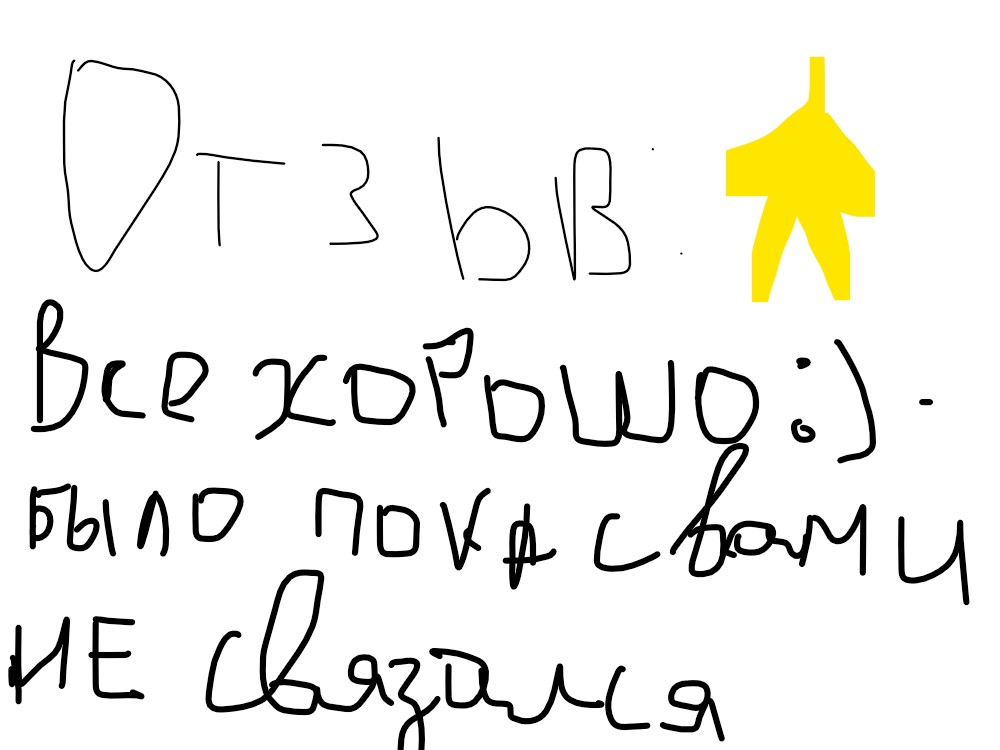 Отзыв:
Все хорошо :) -
было пока с вами
не связался